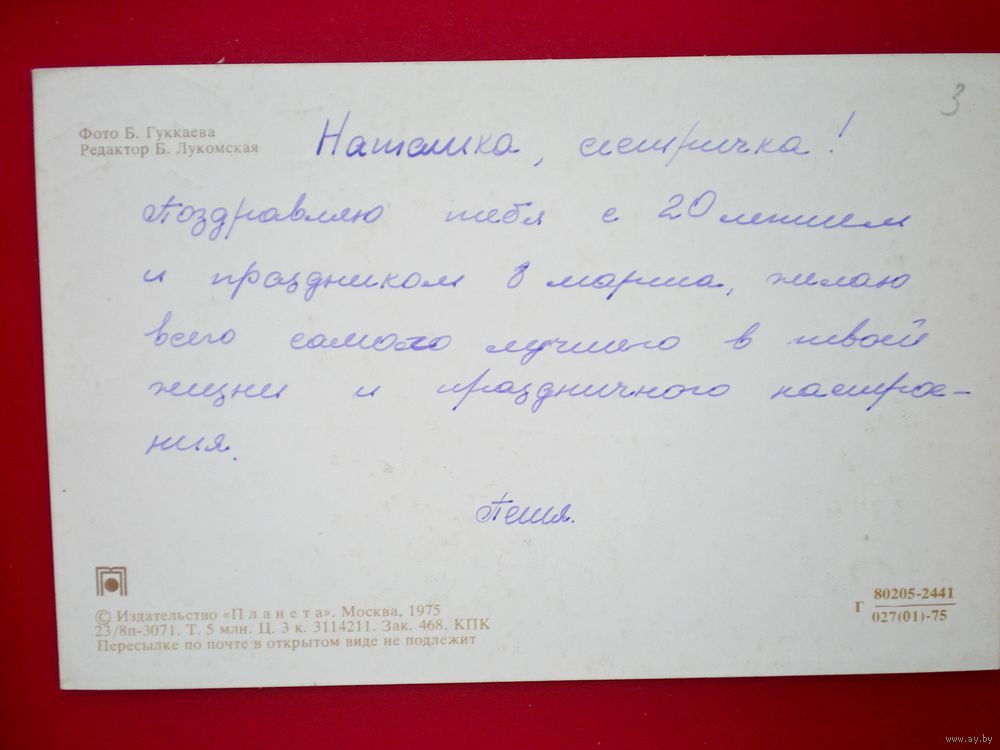 3
Фото Б. Гуккаева
Редактор Б. Лукомская
Наташка, сестричка!
Поздравляю тебя с 20 летием
и праздником 8 марта, желаю
всего самого лучшего в твоей
жизни и праздничного настрое-
ния.
Петя.
© Издательство «Планета». Москва, 1975
23/8п-3071. Т. 5 млн. Ц. 3 к. 3114211. Зак. 468. КПК
Пересылке по почте в открытом виде не подлежит
Г 80205-2441
027(01)-75
www.ay.by